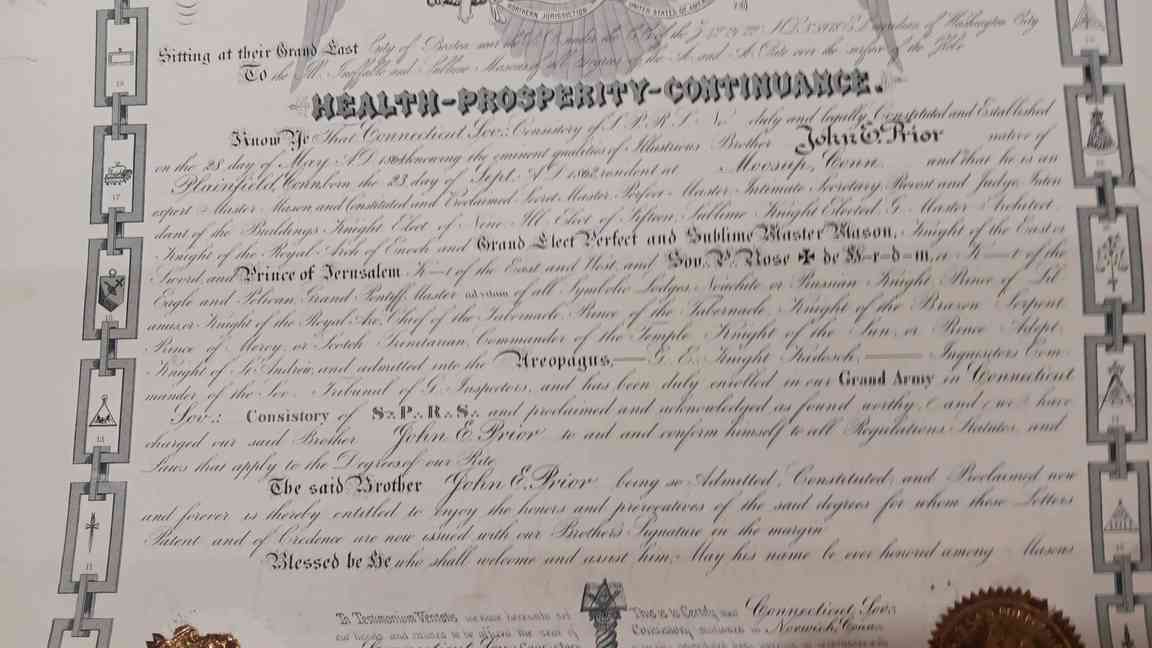 NORTHERN JURISDICTION UNITED STATES OF AMERICA
Sitting at their Grand East City of Boston meridian of Washington City
To the Ill. and Sublime Masons of all degrees of the A. and A. Rite over the surface of the Globe
HEALTH-PROSPERITY-CONTINUANCE.
Know Ye That Connecticut Sov∴ Consistory of S. P. R. S. No duly and legally Constituted and Established
on the 28 day of May A.D. knowing the eminent qualities of Illustrious Brother John E. Prior native of
Plainfield, Conn. born the 23 day of Sept. A.D. 1862 resident at Moosup, Conn. and that he is an
expert Master Mason, and Constituted and Proclaimed Secret Master, Perfect Master, Intimate Secretary, Provost and Judge, Inten
dant of the Buildings Knight Elect of Nine, Ill. Elect of Fifteen, Sublime Knight Elected, G. Master Architect,
Knight of the Royal Arch of Enoch and Grand Elect Perfect and Sublime Master Mason, Knight of the East or
Sword, and Prince of Jerusalem K—t of the East and West, and Sov. P. Rose ✠ de H-r-d-m, or K—t of the
Eagle and Pelican, Grand Pontiff, Master ad vitam of all Symbolic Lodges, Noachite or Prussian Knight, Prince of Lib
anus, or Knight of the Royal Axe, Chief of the Tabernacle, Prince of the Tabernacle, Knight of the Brazen Serpent,
Prince of Mercy, or Scotch Trinitarian, Commander of the Temple, Knight of the Sun, or Prince Adept,
Knight of St. Andrew, and admitted into the Areopagus,— G. E. Knight Kadosch, — Inquisitors Com
mander of the Sov. Tribunal of G. Inspectors, and has been duly enrolled in our Grand Army in Connecticut
Sov∴ Consistory of S∴P∴R∴S∴ and proclaimed and acknowledged as found worthy, (and we have
charged our said Brother John E. Prior to aid and conform himself to all Regulations, Statutes, and
Laws that apply to the Degrees of our Rite.
The said Brother John E. Prior being so Admitted, Constituted, and Proclaimed now
and forever is thereby entitled to enjoy the honors and prerogatives of the said degrees for whom these Letters
Patent and of Credence are now issued with our Brother's Signature on the margin
Blessed be He who shall welcome and assist him. May his name be ever honored among Masons
In Testimonium Veritatis we have hereunto set
our hands and caused to be affixed the seal of
This is to Certify that Connecticut Sov∴
Consistory in Norwich, Conn.
19
17
13
11